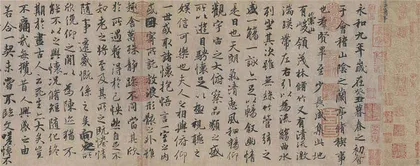 永和九年歲在癸丑暮春之初會
于會稽山陰之蘭亭脩稧事
也群賢畢至少長咸集此地
有崇山峻領茂林脩竹又有清流激
湍暎帶左右引以為流觴曲水
列坐其次雖無絲竹管弦之
盛一觴一詠亦足以暢敘幽情
是日也天朗氣清惠風和暢仰
觀宇宙之大俯察品類之盛
所以遊目騁懷足以極視聽之
娛信可樂也夫人之相與俯仰
一世或取諸懷抱悟言一室之內
或因寄所託放浪形骸之外雖
趣舍萬殊靜躁不同當其欣
於所遇蹔得於己快然自足不
知老之將至及其所之既惓情
隨事遷感慨係之矣向之所
欣俛仰之間以為陳迹猶不
能不以之興懷況脩短隨化終
期於盡古人云死生亦大矣豈
不痛哉每攬昔人興感之由
若合一契未嘗不臨文嗟悼不